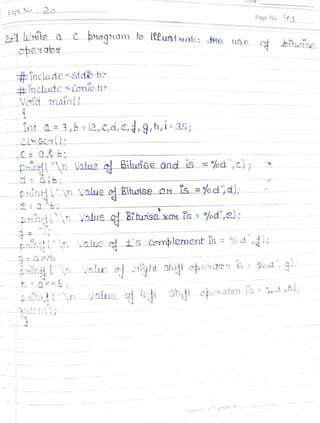 Expt. No. 20
Page No. 43
20.) Write a C program to illustrate the use of bitwise
operator
#include <stdio.h>
#include <conio.h>
Void main()
{
int a = 7, b = 12, c, d, e, f, g, h, i = 35;
clrscr();
c = a & b;
printf("\n Value of Bitwise and is = %d", c);
d = a|b;
printf("\n value of Bitwise or is = %d", d);
e = a^b;
printf("\n Value of Bitwise xor is = %d", e);
f =
printf("\n value of 1's complement is = %d", f);
g = a>>b
printf("\n value of right shift operator is = %d", g);
h = a<<b;
printf("\n value of left shift operator is = %d", h);
getch();
}
Signature